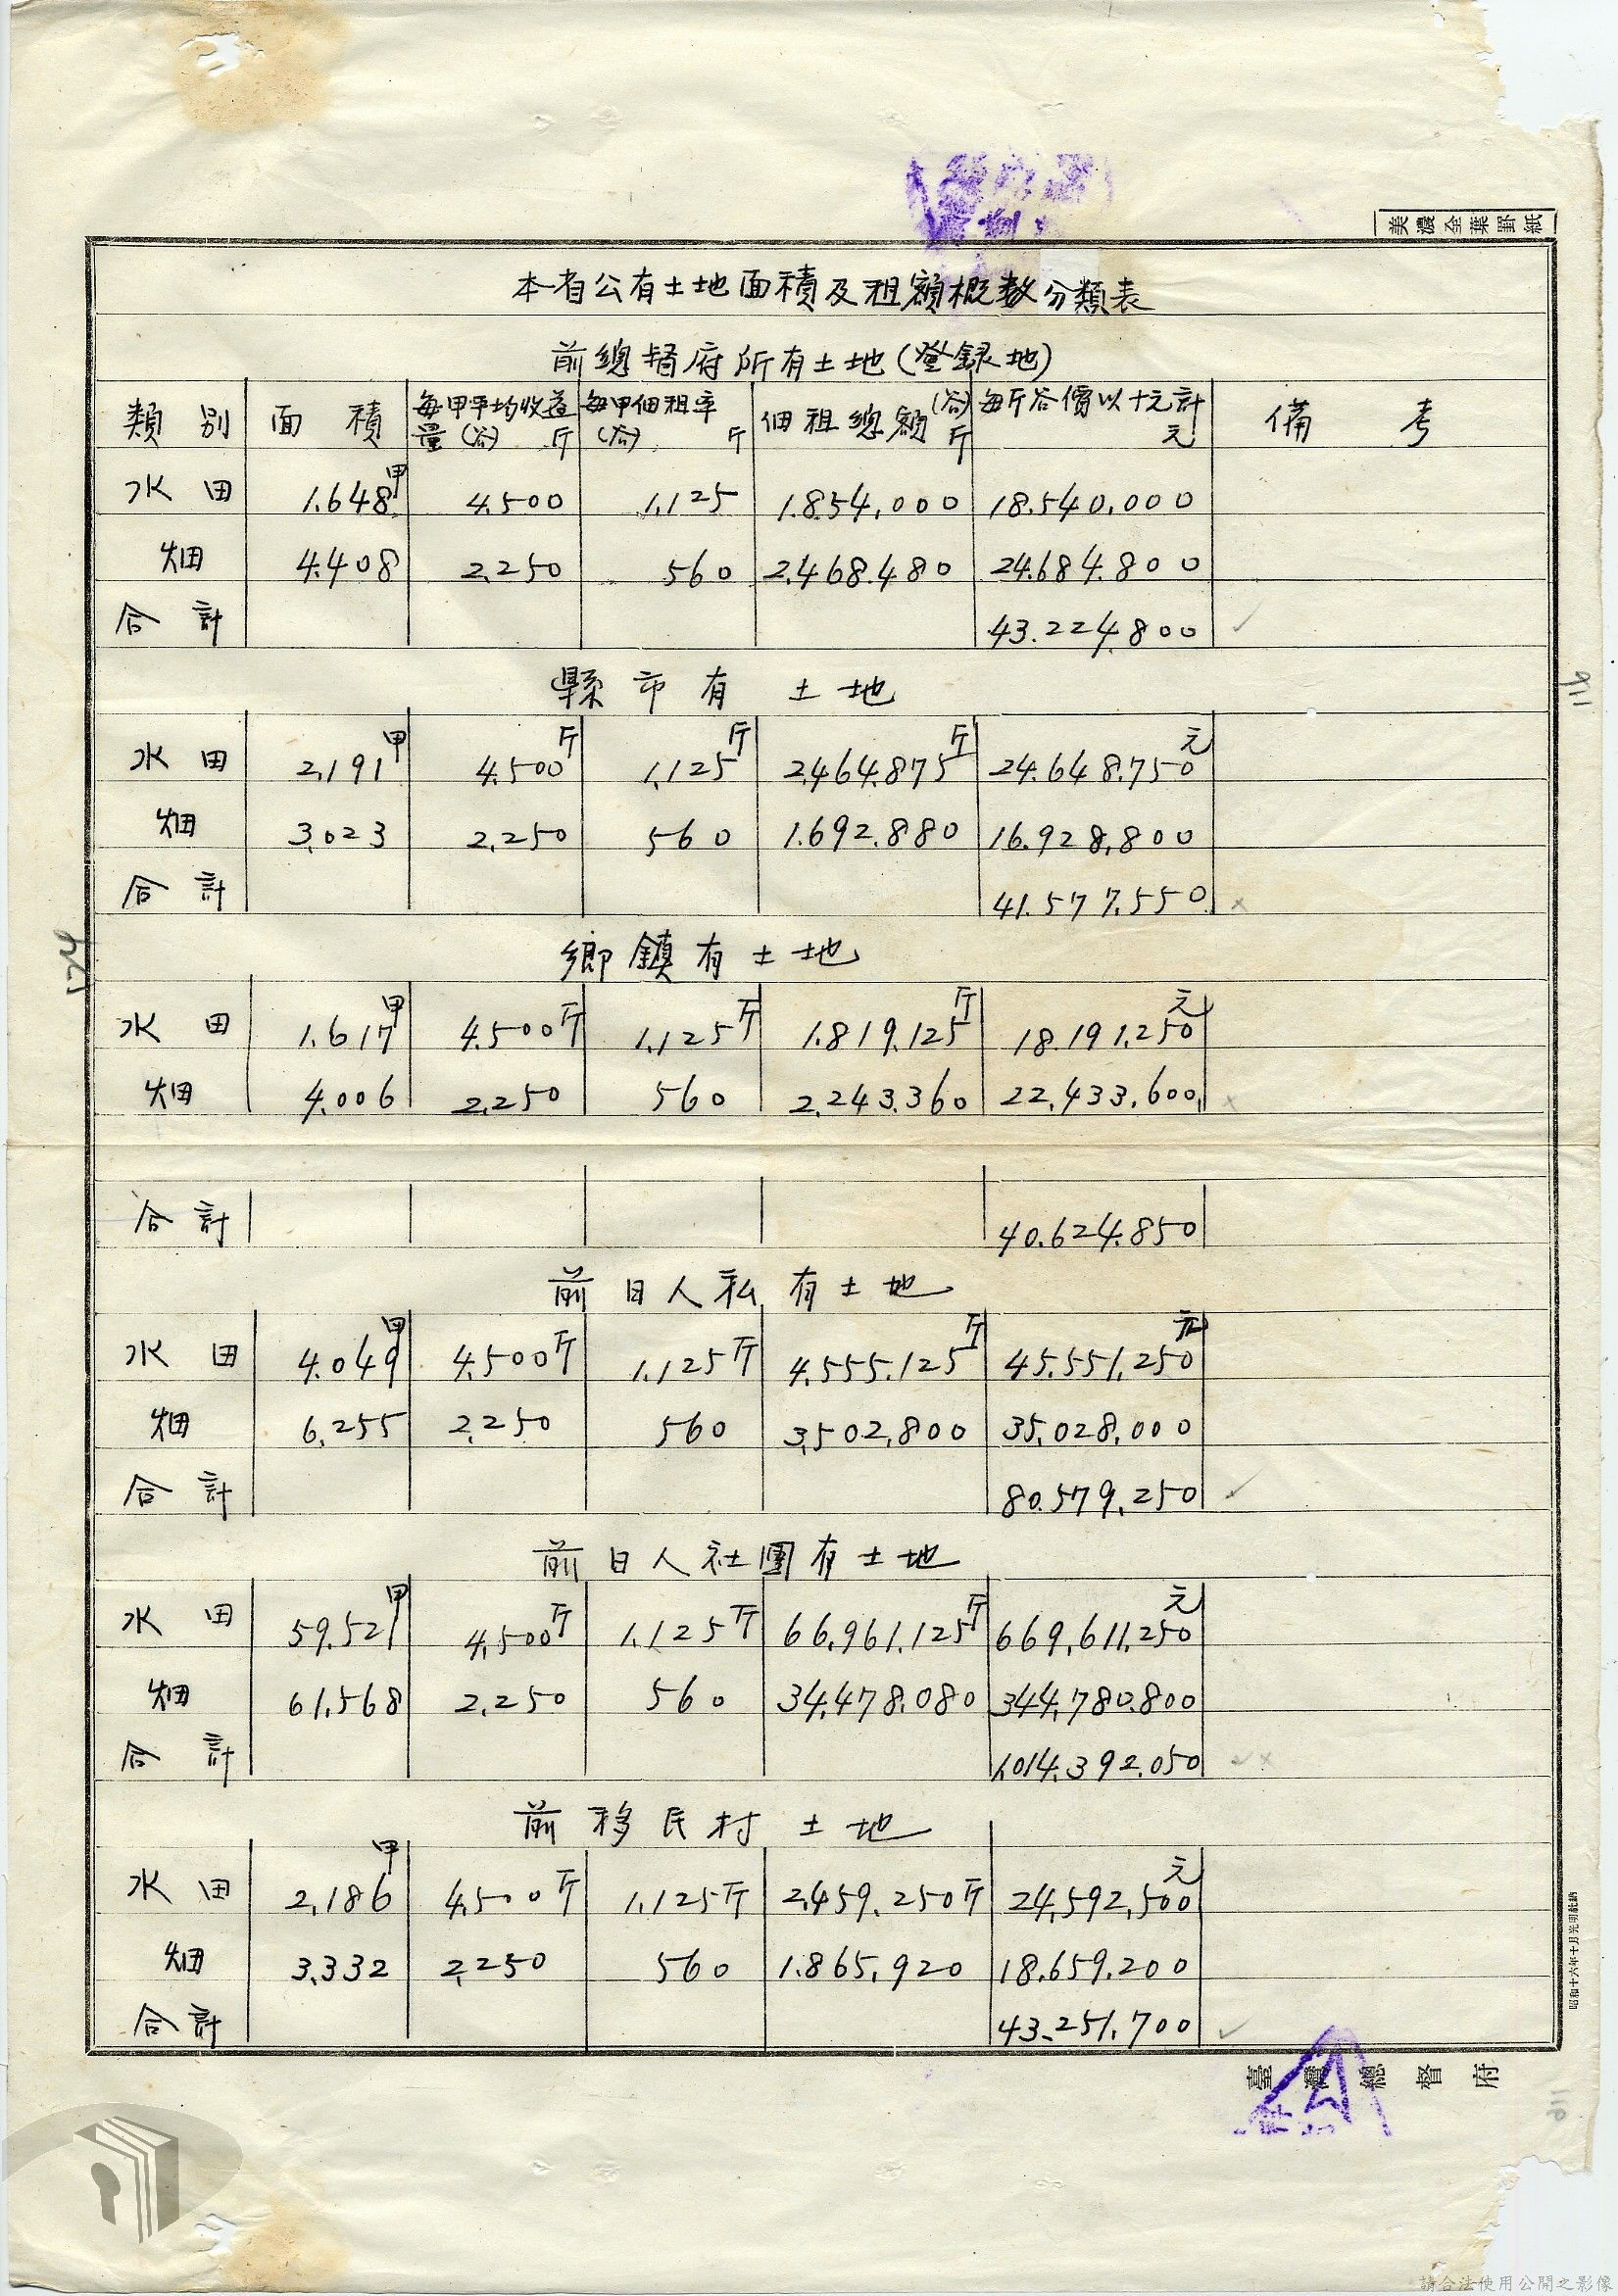 美濃全葉罫紙
本省公有土地面積及租額概数分類表
前總督府所有土地(登録地)
類別 面積 每甲平均收益量(谷)斤 每甲佃租率(谷)斤 佃租總額(谷)斤 每斤谷價以十元計元 備考
水田 1.648甲 4.500 1.125 1.854.000 18.540.000
畑 4.408 2.250 560 2.468.480 24.684.800
合計 43.224.800
縣市有土地
水田 2.191甲 4.500斤 1.125斤 2.464.875斤 24.648.750元
畑 3.023 2.250 560 1.692.880 16.928.800
合計 41.577.550
鄉鎮有土地
水田 1.617甲 4.500斤 1.125斤 1.819.125斤 18.191.250元
畑 4.006 2.250 560 2.243.360 22.433.600
合計 40.624.850
前日人私有土地
水田 4.049甲 4.500斤 1.125斤 4.555.125斤 45.551.250元
畑 6.255 2.250 560 3.502.800 35.028.000
合計 80.579.250
前日人社團有土地
水田 59.521甲 4.500斤 1.125斤 66.961.125斤 669.611.250元
畑 61.568 2.250 560 34.478.080 344.780.800
合計 1.014.392.050
前移民村土地
水田 2.186甲 4.500斤 1.125斤 2.459.250斤 24.592.500元
畑 3.332 2.250 560 1.865.920 18.659.200
合計 43.251.700
臺灣總督府
請合法使用公開之影像